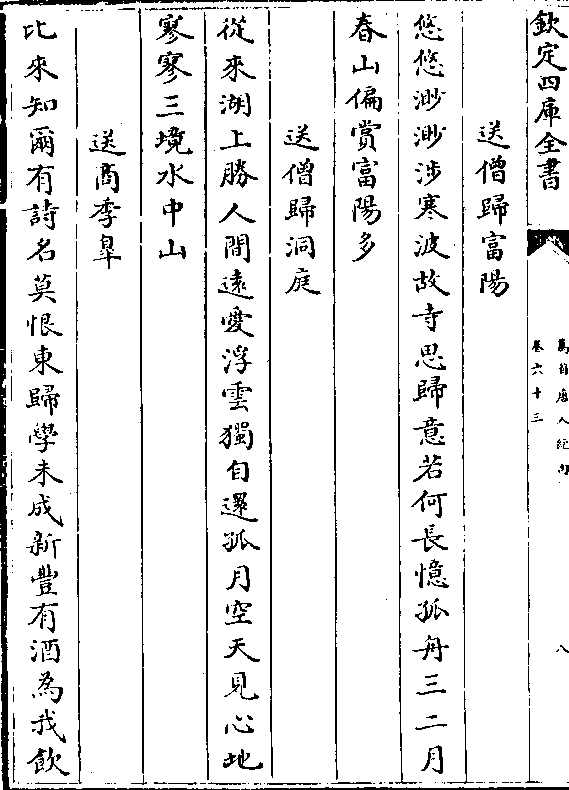 欽定四庫全書
萬首唐人絶句
卷六十三
八
送僧歸富陽
悠悠渺渺涉寒波故寺思歸意若何長憶孤舟三二月
春山偏賞富陽多
送僧歸洞庭
從來湖上勝人間遠愛浮雲獨自還孤月空天見心地
寥寥三境水中山
送商季臯
比來知爾有詩名莫恨東歸學未成新豐有酒為我飲